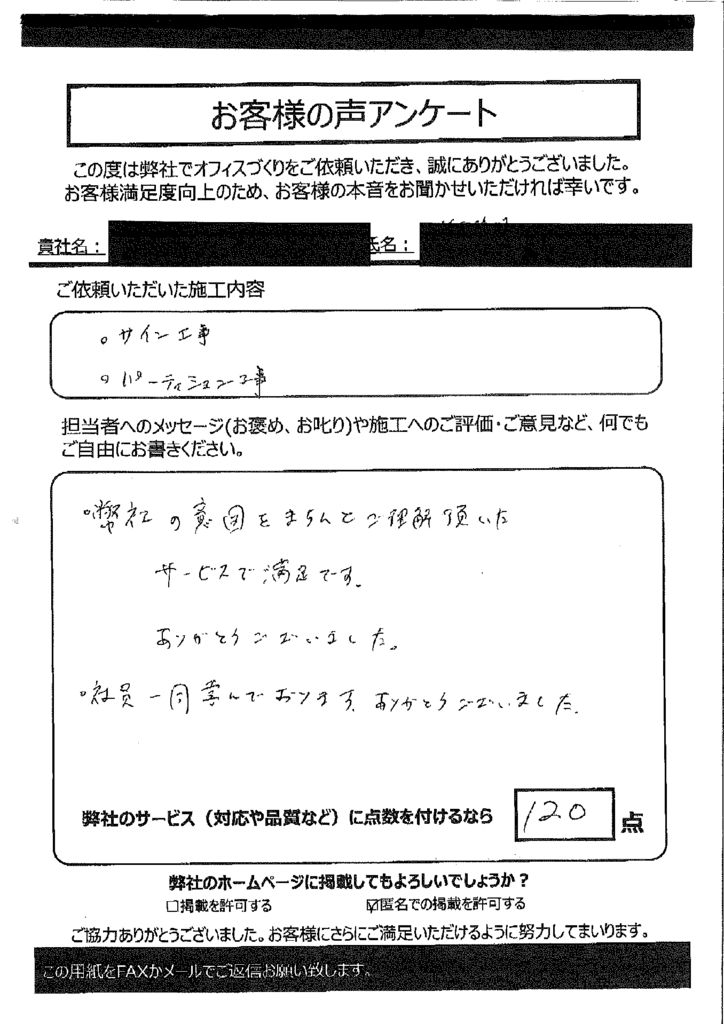 お客様の声アンケート
この度は弊社でオフィスづくりをご依頼いただき、誠にありがとうございました。
お客様満足度向上のため、お客様の本音をお聞かせいただければ幸いです。
貴社名： 氏名：
ご依頼いただいた施工内容
。サイン工事
。パーティション工事
担当者へのメッセージ(お褒め、お叱り)や施工へのご評価・ご意見など、何でも
ご自由にお書きください。
。弊社の意図をきちんとご理解頂いた
サービスで満足です.
ありがとうございました。
。社員一同喜んでおります. ありがとうございました.
弊社のサービス（対応や品質など）に点数を付けるなら 120 点
弊社のホームページに掲載してもよろしいでしょうか？
□掲載を許可する ☑匿名での掲載を許可する
ご協力ありがとうございました。お客様にさらにご満足いただけるように努力してまいります。
この用紙をFAXかメールでご返信お願い致します。